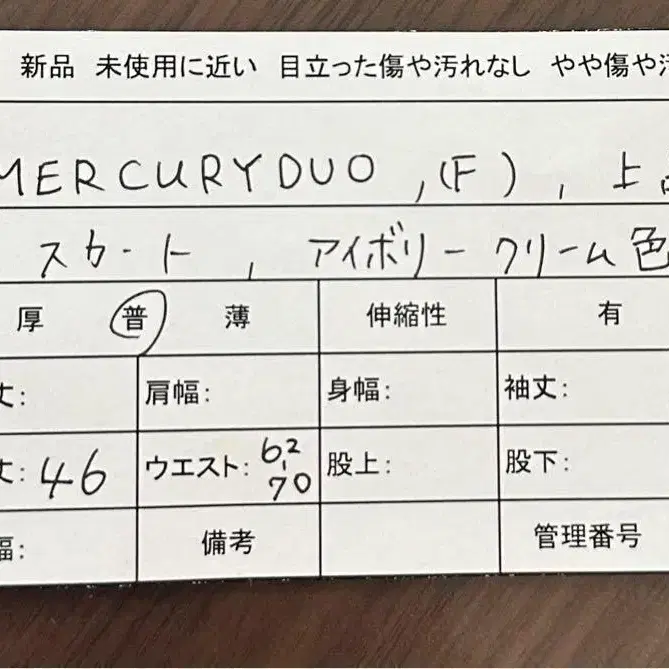 新品 未使用に近い 目立った傷や汚れなし やや傷や汚
MERCURYDUO, (F), 上品
スカート, アイボリークリーム色
厚 普 薄 伸縮性 有
丈: 肩幅: 身幅: 袖丈:
丈: 46 ウエスト: 62-70 股上: 股下:
幅: 備考 管理番号